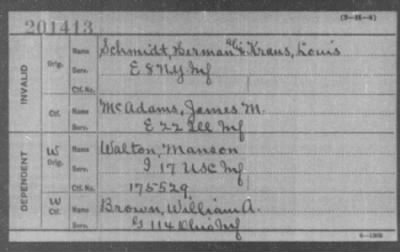 (3-II-4)
201413
INVALID
Orig.
Name Schmidt, Herman als Kraus, Louis
Serv. E 8 NY Inf
Ctf. No.
Ctf.
Name McAdams, James M.
Serv. E 22 Ill Inf
DEPENDENT
W
Orig.
Name Walton, Manson
Serv. I 17 USC Inf
Ctf. No. 175529
W
Ctf.
Name Brown, William A.
Serv. 114 Ohio Inf